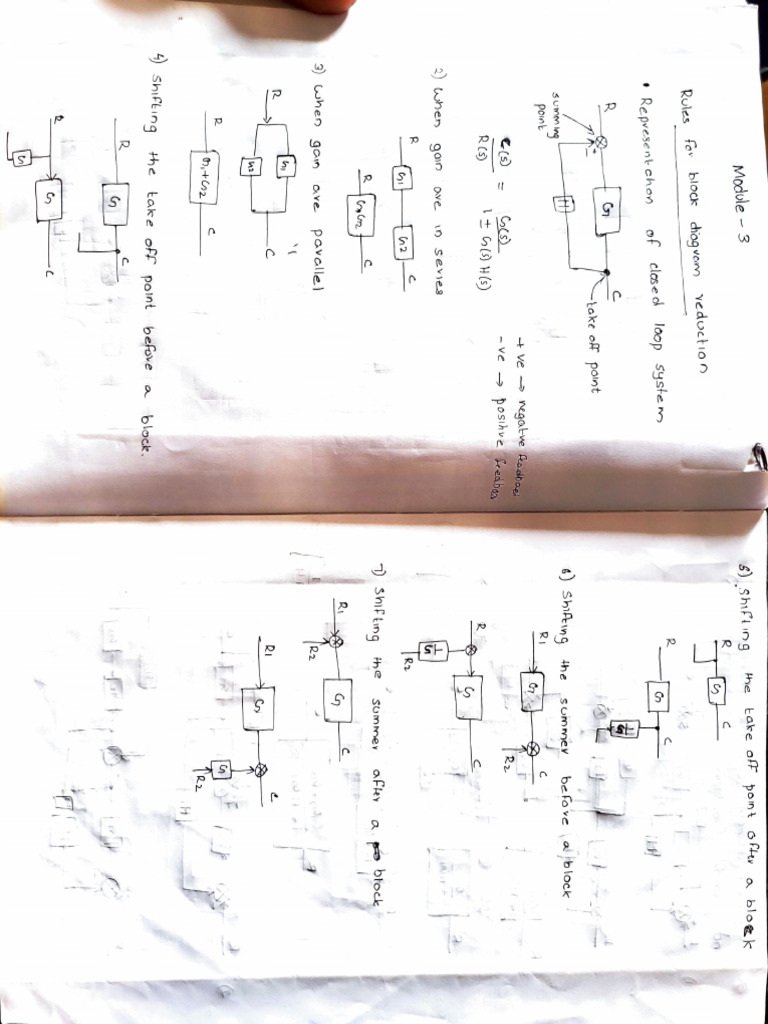 Module - 3
Rules for block diagram reduction
• Representation of closed loop system
R
G
C
+
-
H
summing
point
take off point
C(s) = G(s)
R(s) 1 ± G(s) H(s)
+ve → negative
-ve → positive
2) When gain are in series
R G1 G2 C
R G1G2 C
3) When gain are parallel
R G1 C
G2
R G1+G2 C
4) Shifting the take off point before a block.
R G C
R G C
G
5) Shifting the take off point after a block
R G C
R G C
1/G
6) Shifting the summer before a block
R1 G C
R2
R G C
1/G
R2
7) Shifting the summer after a block
R1 G C
R2
R1 G C
G
R2